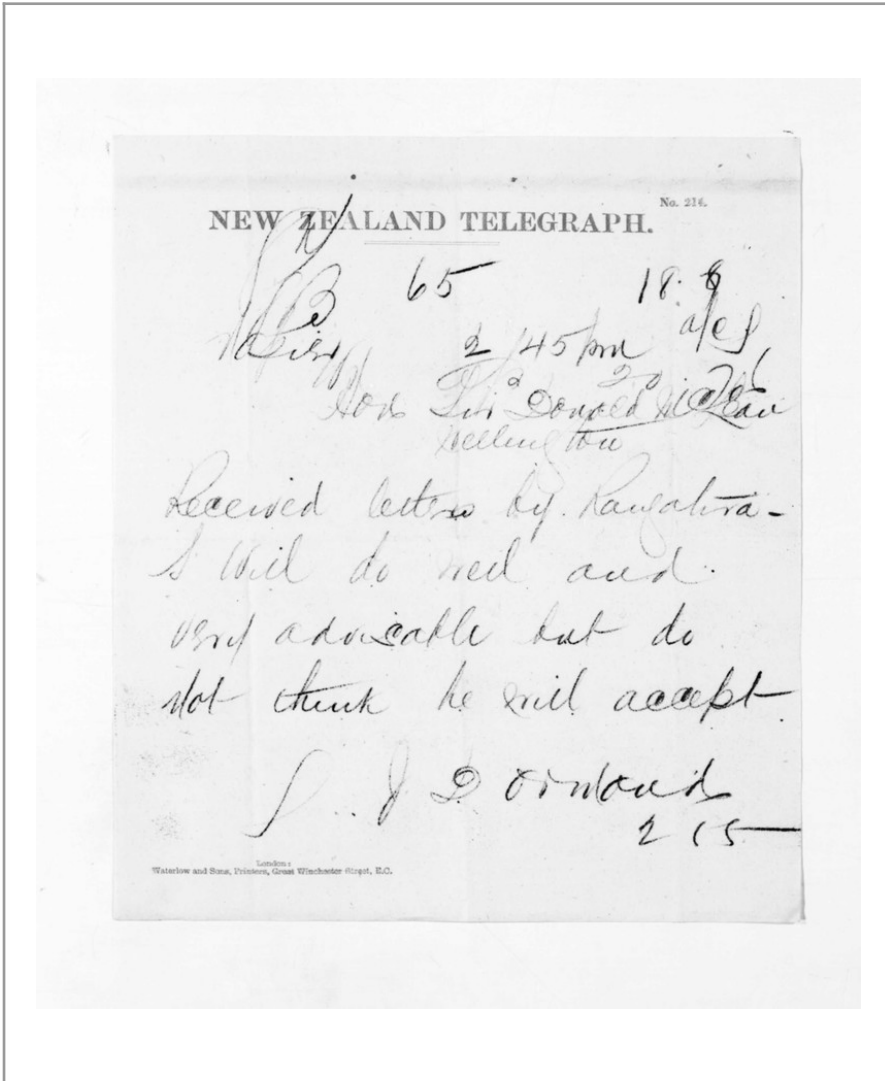 No. 214.
NEW ZEALAND TELEGRAPH.
B 65 18. 8
Napier 2 45 pm a/c
20 76
Hon Sir Donald McLean
Wellington
Received letters by Rangatira -
S will do well and
very advisable but do
not think he will accept
J D Ormond
2 15
London:
Waterlow and Sons, Printers, Great Winchester Street, E.C.